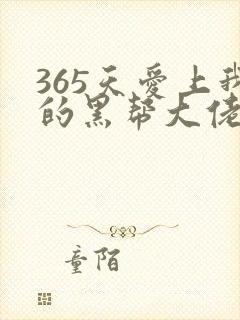 365天爱上我
的黑帮大佬
童陌